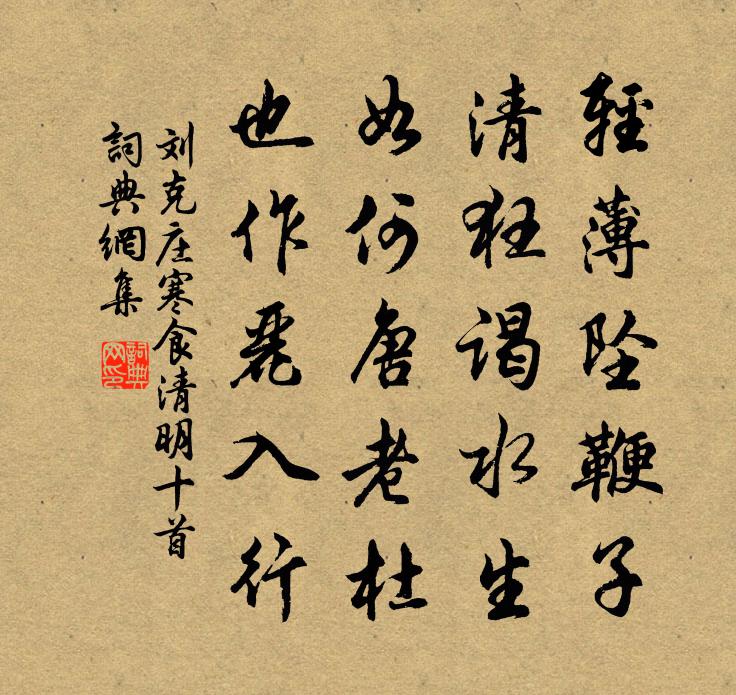 輕薄坠鞭子
清狂谒水生
如何唐老杜
也作麗人行
刘克庄寒食清明十首
詞典網集
詞典网印